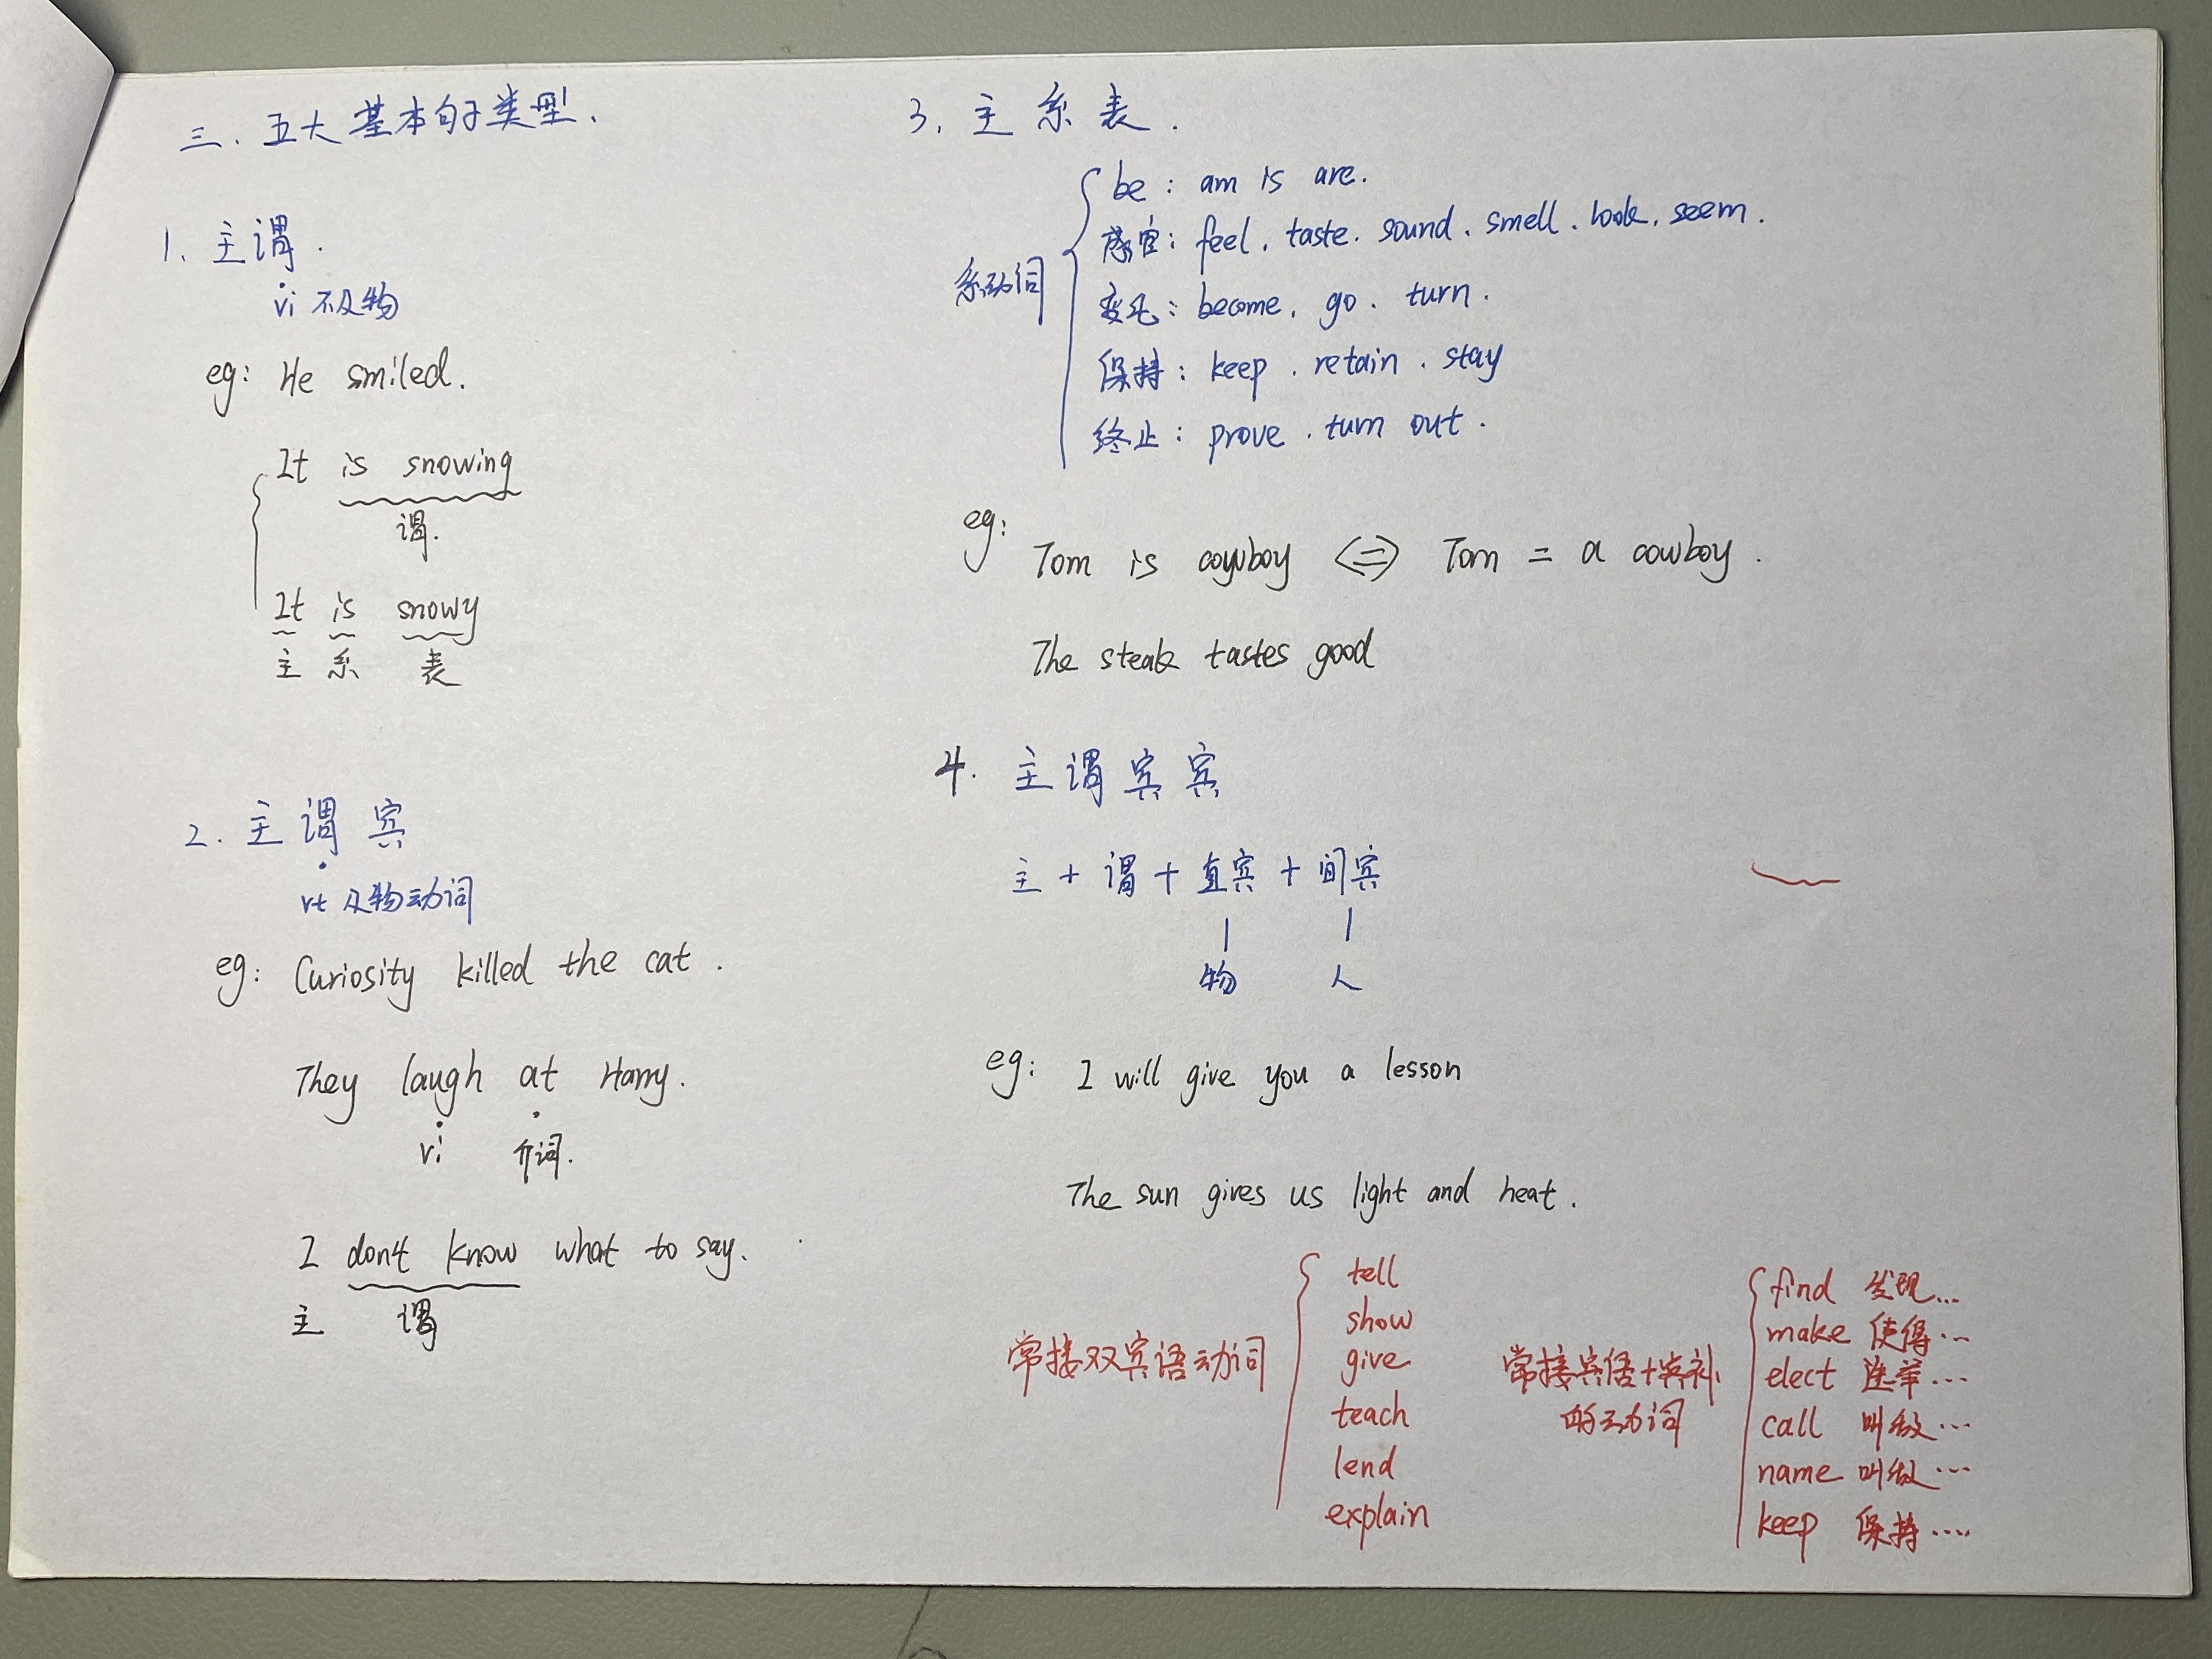 三、五大基本句子类型、
1、主谓.
vi 不及物
eg: He smiled.
It is snowing
谓.
It is snowy
主 系 表
2. 主谓宾
vt 及物动词
eg: Curiosity killed the cat.
They laugh at Harry.
vi 介词.
I don't know what to say.
主 谓
3、主系表.
系动词
be: am is are.
感官: feel. taste. sound. smell. look. seem.
变化: become. go. turn.
保持: keep. retain. stay
终止: prove. turn out.
eg:
Tom is cowboy <=> Tom = a cowboy.
The steak tastes good
4. 主谓宾宾
主 + 谓 + 直宾 + 间宾
物 人
eg: I will give you a lesson
The sun gives us light and heat.
常接双宾语动词
tell
show
give
teach
lend
explain
常接宾语+宾补
的动词
find 发现...
make 使得...
elect 选举...
call 叫做...
name 叫做...
keep 保持....